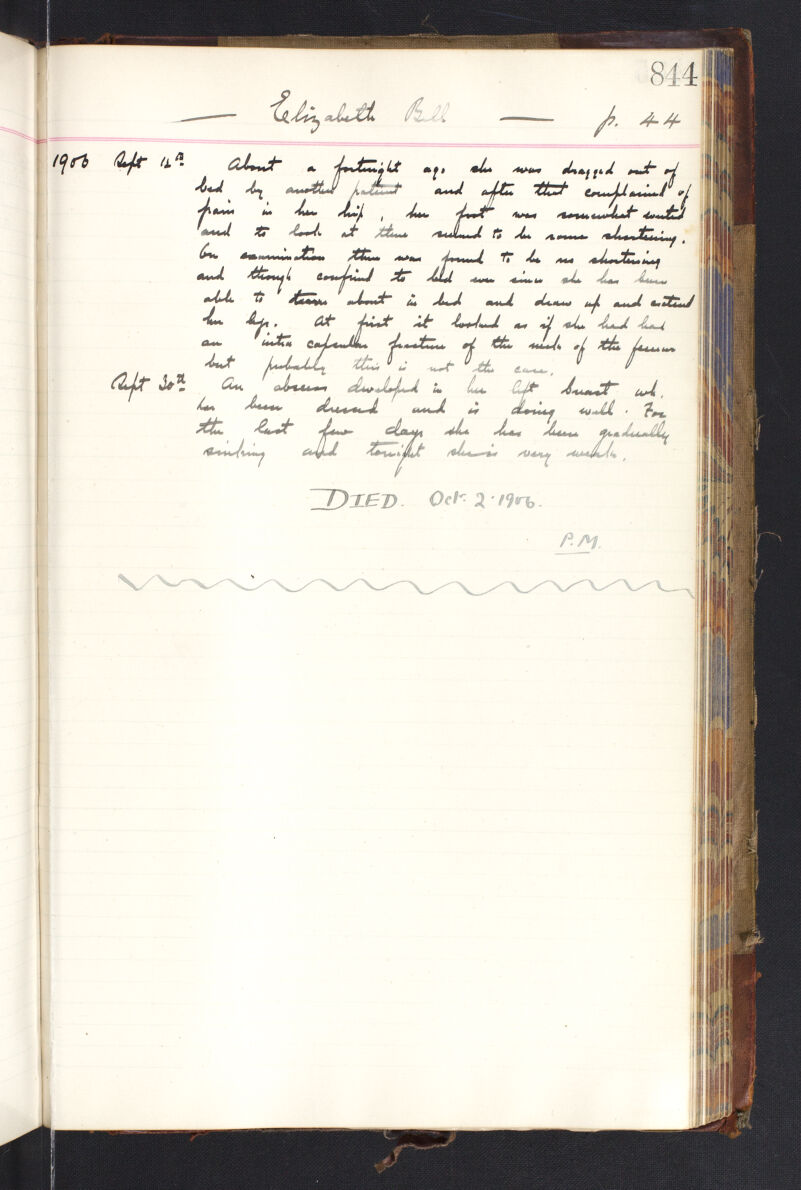 844
— Elizabeth Bell — p. 44
1906 Sept 12th About a fortnight ago she was dragged out of
bed by another patient and after that complained of
pain in her hip, her foot was somewhat everted
and to look at there seemed to be some shortening.
On examination there was found to be no shortening
and though confined to bed ever since she has been
able to about in bed and draw up and extend
her legs. At first it looked as if she had had
an intra capsular fracture of the neck of the femur
but probably this is not the case.
Sept 30th An abscess developed in her left breast wh.
has been dressed and is doing well. For
the last few days she has been gradually
sinking and tonight she is very weak.
DIED. Oct. 2. 1906.
P.M.